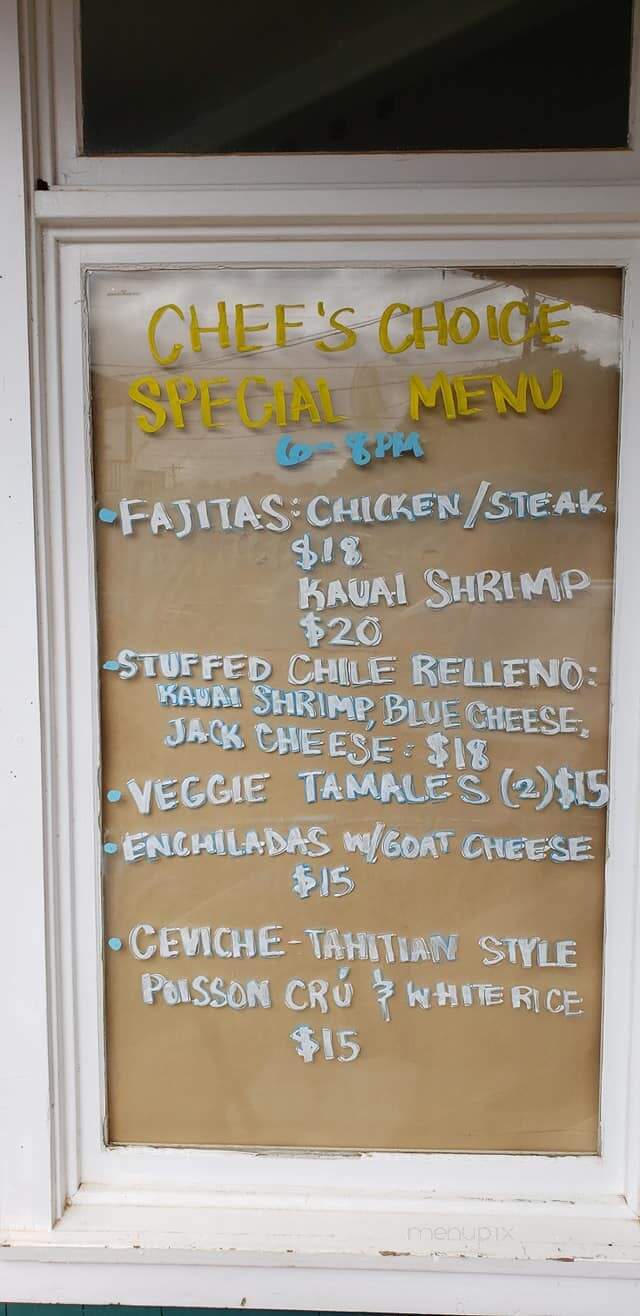 CHEF'S CHOICE
SPECIAL MENU
6-8PM
• FAJITAS: CHICKEN/STEAK
$18
KAUAI SHRIMP
$20
• STUFFED CHILE RELLENO:
KAUAI SHRIMP, BLUE CHEESE,
JACK CHEESE: $18
• VEGGIE TAMALES (2) $15
• ENCHILADAS W/GOAT CHEESE
$15
• CEVICHE - TAHITIAN STYLE
POISSON CRÚ & WHITE RICE
$15
menupix